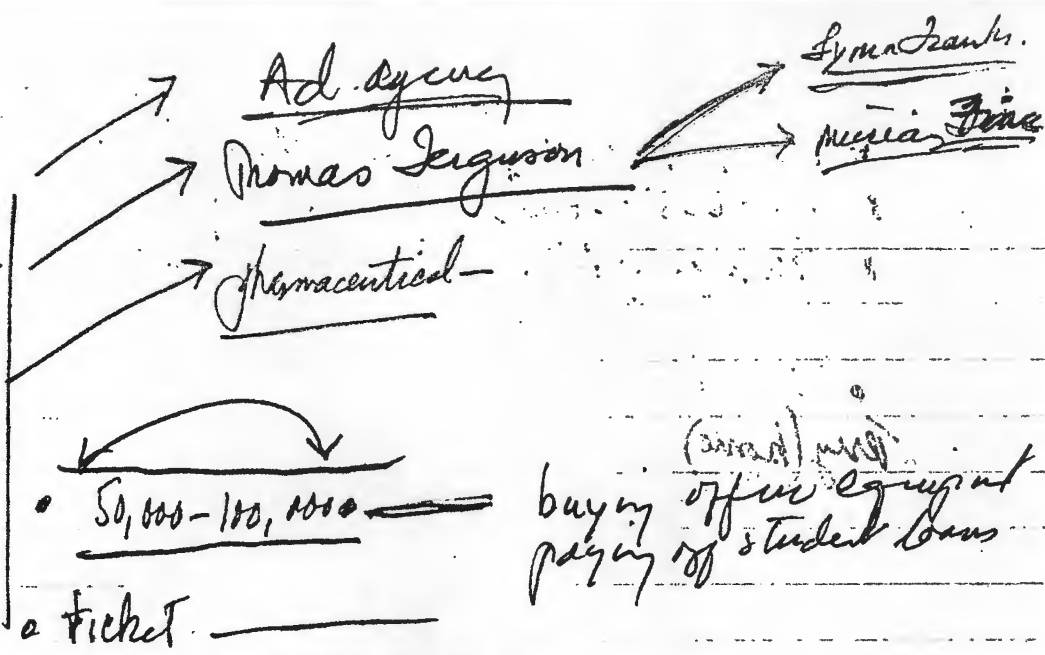 Ad. agency
Thomas Ferguson
pharmaceutical –
50,000 – 100,0000
buying office equipment
paying off student loans
ticket